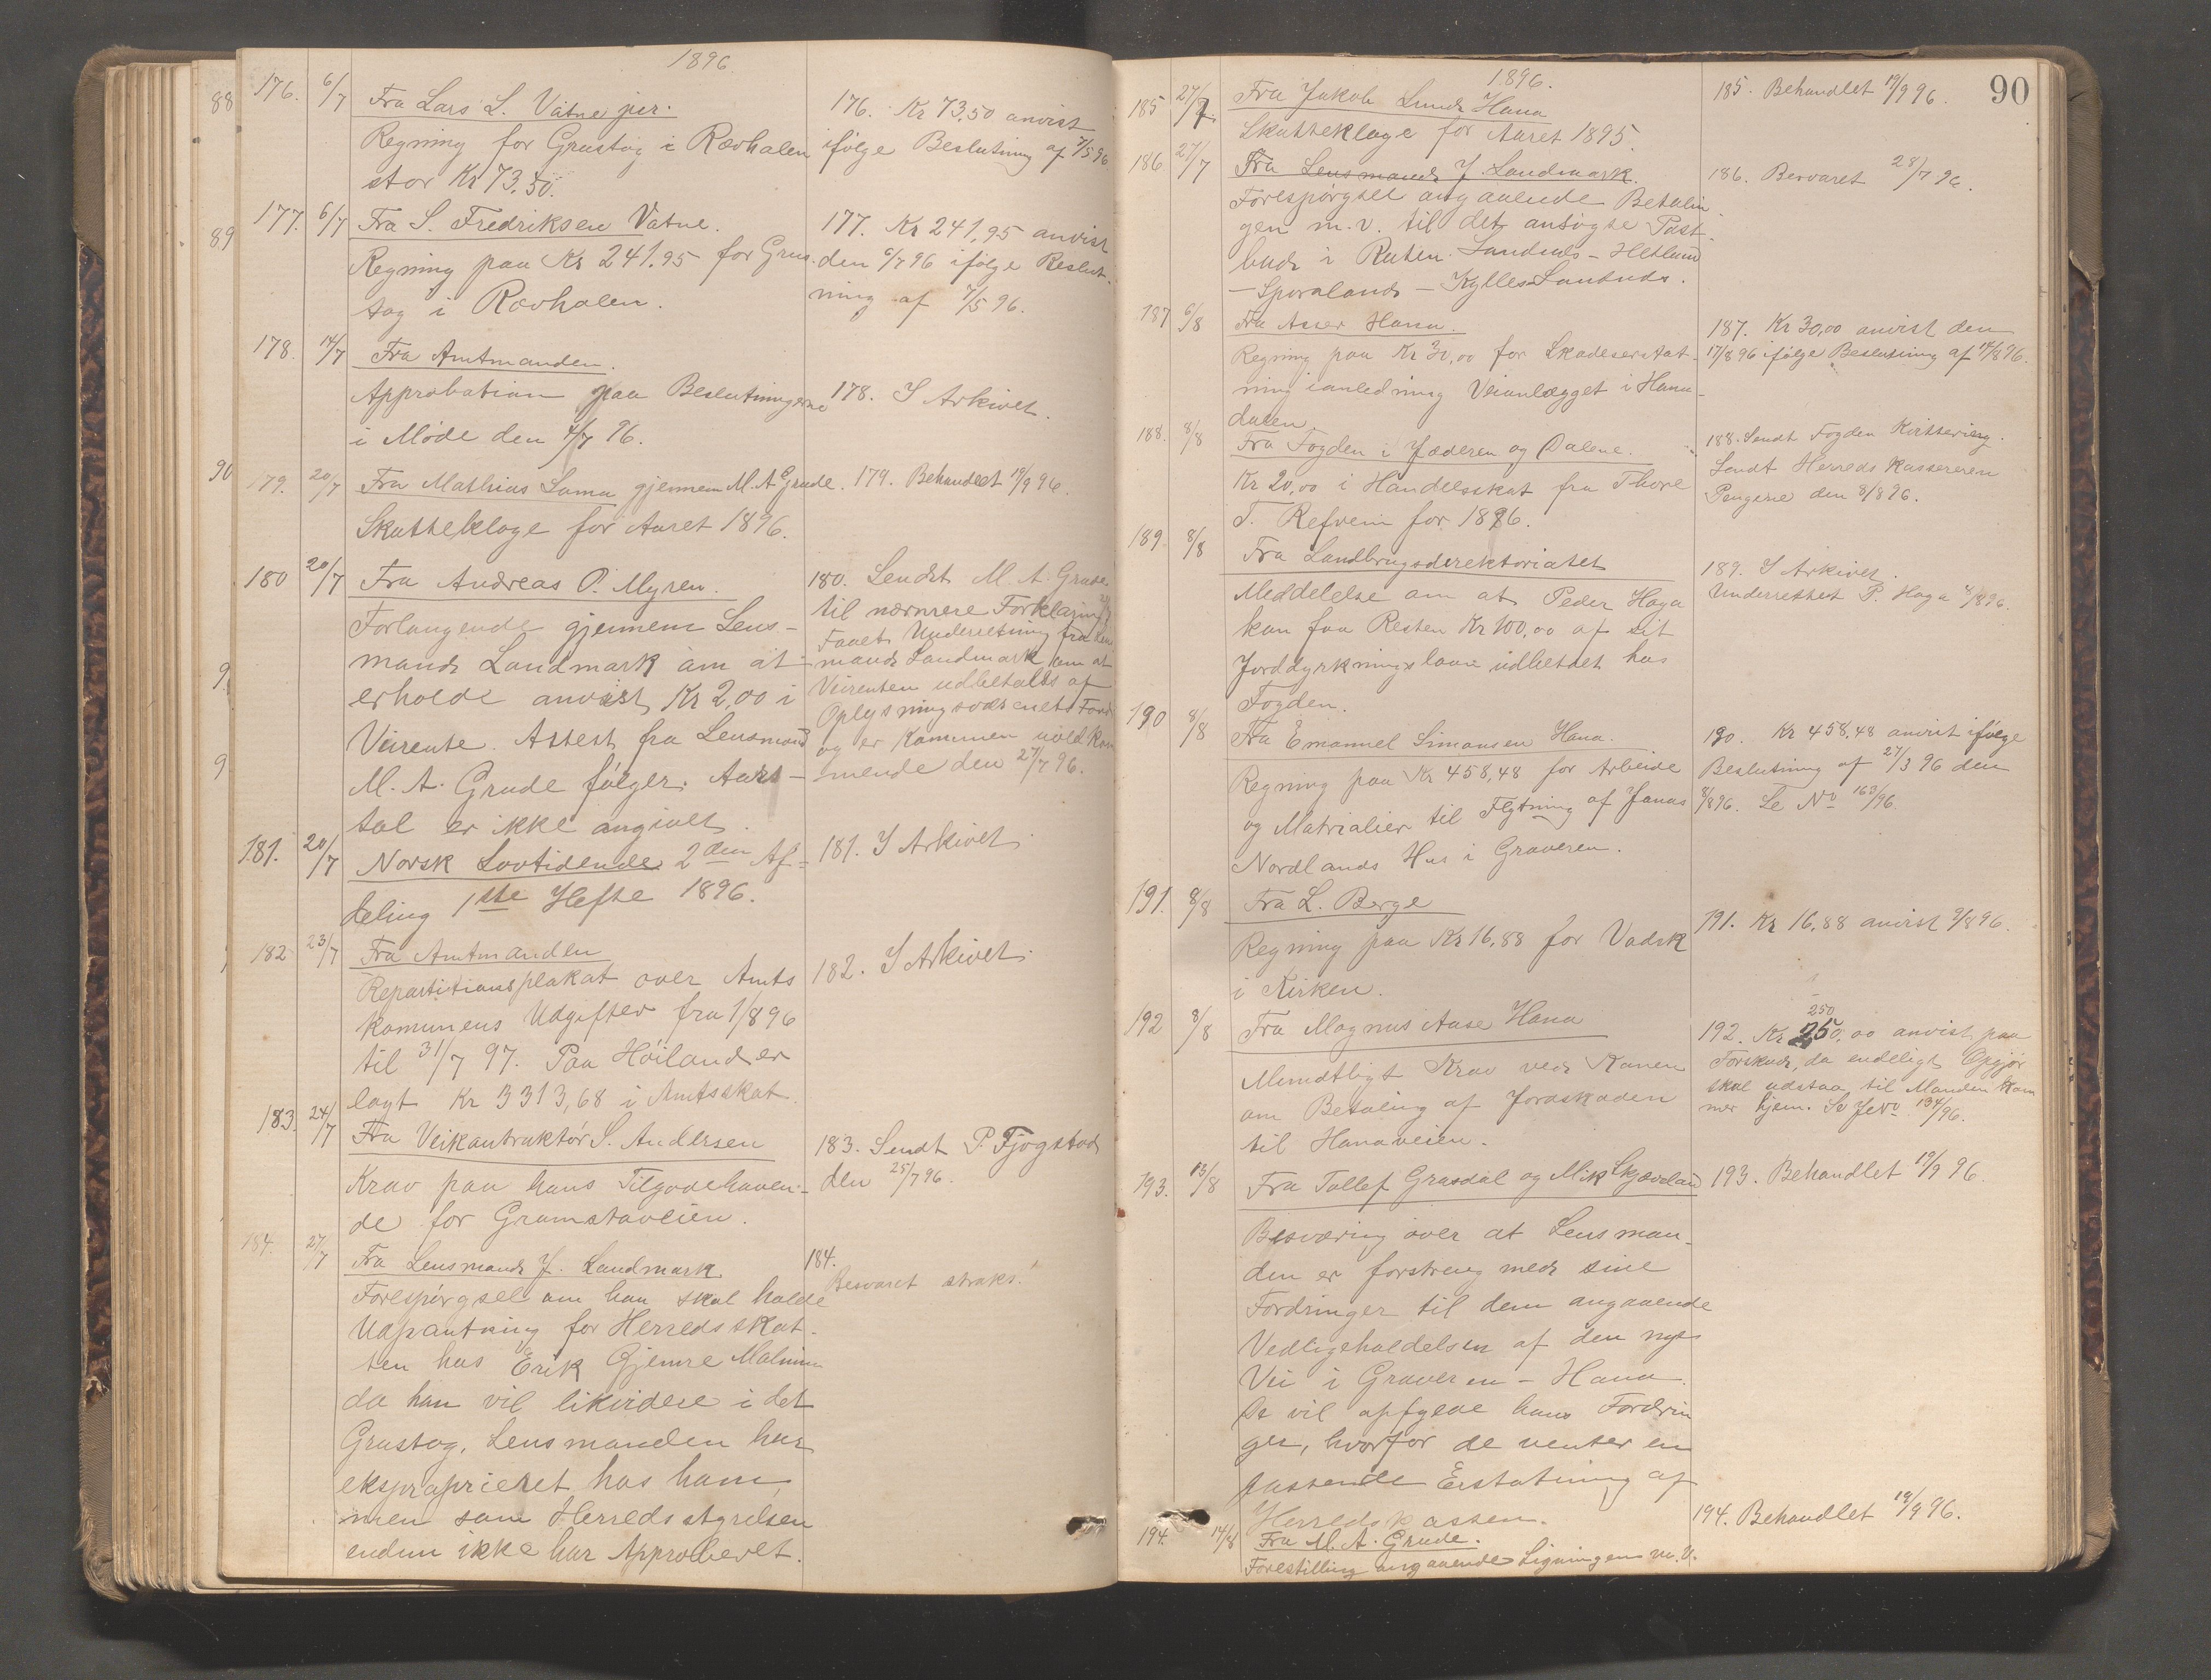 1896
176. 6/7 Fra Lars L. Vatne jur.
Regning for Grustag i Rævhalen
stor Kr 73,50.
176. Kr 73,50 anvist
ifølge Beslutning af 7/5 96
177. 6/7 Fra S. Fredriksen Vatne.
Regning paa Kr 241.95 for Grus-
tag i Rævhalen.
177. Kr 241,95 anvist
den 6/7 96 ifølge Beslut-
ning af 7/5 96.
178. 14/7 Fra Amtmanden.
Approbation paa Beslutningerne
i Møde den 4/7 96.
178. I Arkivet.
179. 20/7 Fra Mathias Lima gjennem M. A. Grude.
Skatteklage for Aaret 1896.
179. Behandlet 19/9 96.
180 20/7 Fra Andreas O. Myren.
Forlangende gjennem Lens-
mand Landmark om at
erholde anvist Kr 2,00 i
Veirente. Attest fra Lensmand
M. A. Grude følger. Aars-
tal er ikke angivet.
180. Sendt M. A. Grude
til nærmere Forklaring
Faaet Underretning fra Lens
mand Landmark om at
Veirenten udbetales af
Oplysningsvæsenets Fond
og er Kommunen uvedkom
mende den 27/7 96.
181. 20/7 Norsk Lovtidende 2den Af-
deling 1ste Hefte 1896.
181. I Arkivet.
182 23/7 Fra Amtmanden
Repartitionsplakat over Amts
komunens Udgifter fra 1/8 96
til 31/7 97. Paa Høiland er
lagt Kr 3313,68 i Amtsskat.
182. I Arkivet.
183. 24/7 Fra Veikontruktør S. Andersen
Krav paa hans Tilgodehaven-
de for Gramstaveien.
183. Sendt P. Fjogstad
den 25/7 96.
184. 27/7 Fra Lensmand J. Landmark
Forespørgsel om han skal holde
Udpantning for Herredsskat-
ten hos Erik Gjemre Malmin
da han vil likvidere i det
Grustag, Lensmanden har
eksproprieret hos ham,
men som Herredsstyrelsen
endnu ikke har Approberet.
184.
Besvaret straks.
88
89
90
9
9
90
1896.
185 27/7 Fra Jakob Lunde Hana
Skatteklage for Aaret 1895.
185. Behandlet 19/9 96.
186 27/7 Fra Lensmand J. Landmark.
Forespørgsel angaaende Betalin
gen m.v. til det ansøgte Post-
bud i Ruten Sandnes - Hetland
- Sporaland - Kylles Sandnes.
186. Besvaret 28/7 96.
187 6/8 Fra Asser Hana.
Regning paa Kr 30,00 for Skadeserstat-
ning ianledning Veianlægget i Hana-
dalen.
187. Kr 30,00 anvist den
17/8 96 ifølge Beslutning af 14/8 96.
188. 8/8 Fra Fogden i Jæderen og Dalene.
Kr 20,00 i Handelsskat fra Thore
T. Refveim for 1896.
188. Sendt Fogden Kvittering.
Sendt Herreds Kassereren
Pengene den 8/8 96.
189. 8/8 Fra Landbrugsdirektoriatet
Meddelelse om at Peder Haga
kan faa Resten Kr 100,00 af sit
Jorddyrkningslaan udbetalt hos
Fogden.
189. I Arkivet.
Underrettet P. Haga 8/8 96.
190 8/8 Fra Emanuel Simonsen Hana.
Regning paa Kr 458,48 for Arbeide
og Matrialier til Flytning af Jonas
Nordlands Hus i Graveren.
190. Kr 458,48 anvist ifølge
Beslutning af 27/3 96 den
8/8 96. Se No 163/96.
191. 8/8 Fra L. Berge
Regning paa Kr 16,88 for Vadsk
i Kirken.
191. Kr 16,88 anvist 9/8 96.
192 8/8 Fra Magnus Aase Hana
Mundtligt Krav ved Konen
om Betaling af Jordskaden
til Hanaveien.
250
192. Kr 250,00 anvist paa
Forskud, da endeligt Opgjør
skal udstaa, til Manden kom
mer hjem. Se Jrno 134/96.
193. 13/8 Fra Tollef Grasdal og Mik Skjævelan
Besværing over at Lensman-
den er forstreng med sine
Fordringer til dem angaaende
Vedligeholdelsen af den nye
Vei i Graveren - Hana.
De vil opfylde hans Fordrin
ger, hvorfor de venter en
passende Erstatning af
Herredskassen.
193. Behandlet 19/9 96.
194. 14/8 Fra M. A. Grude.
Forestilling angaaende Ligningen m. V.
194. Behandlet 19/9 96.